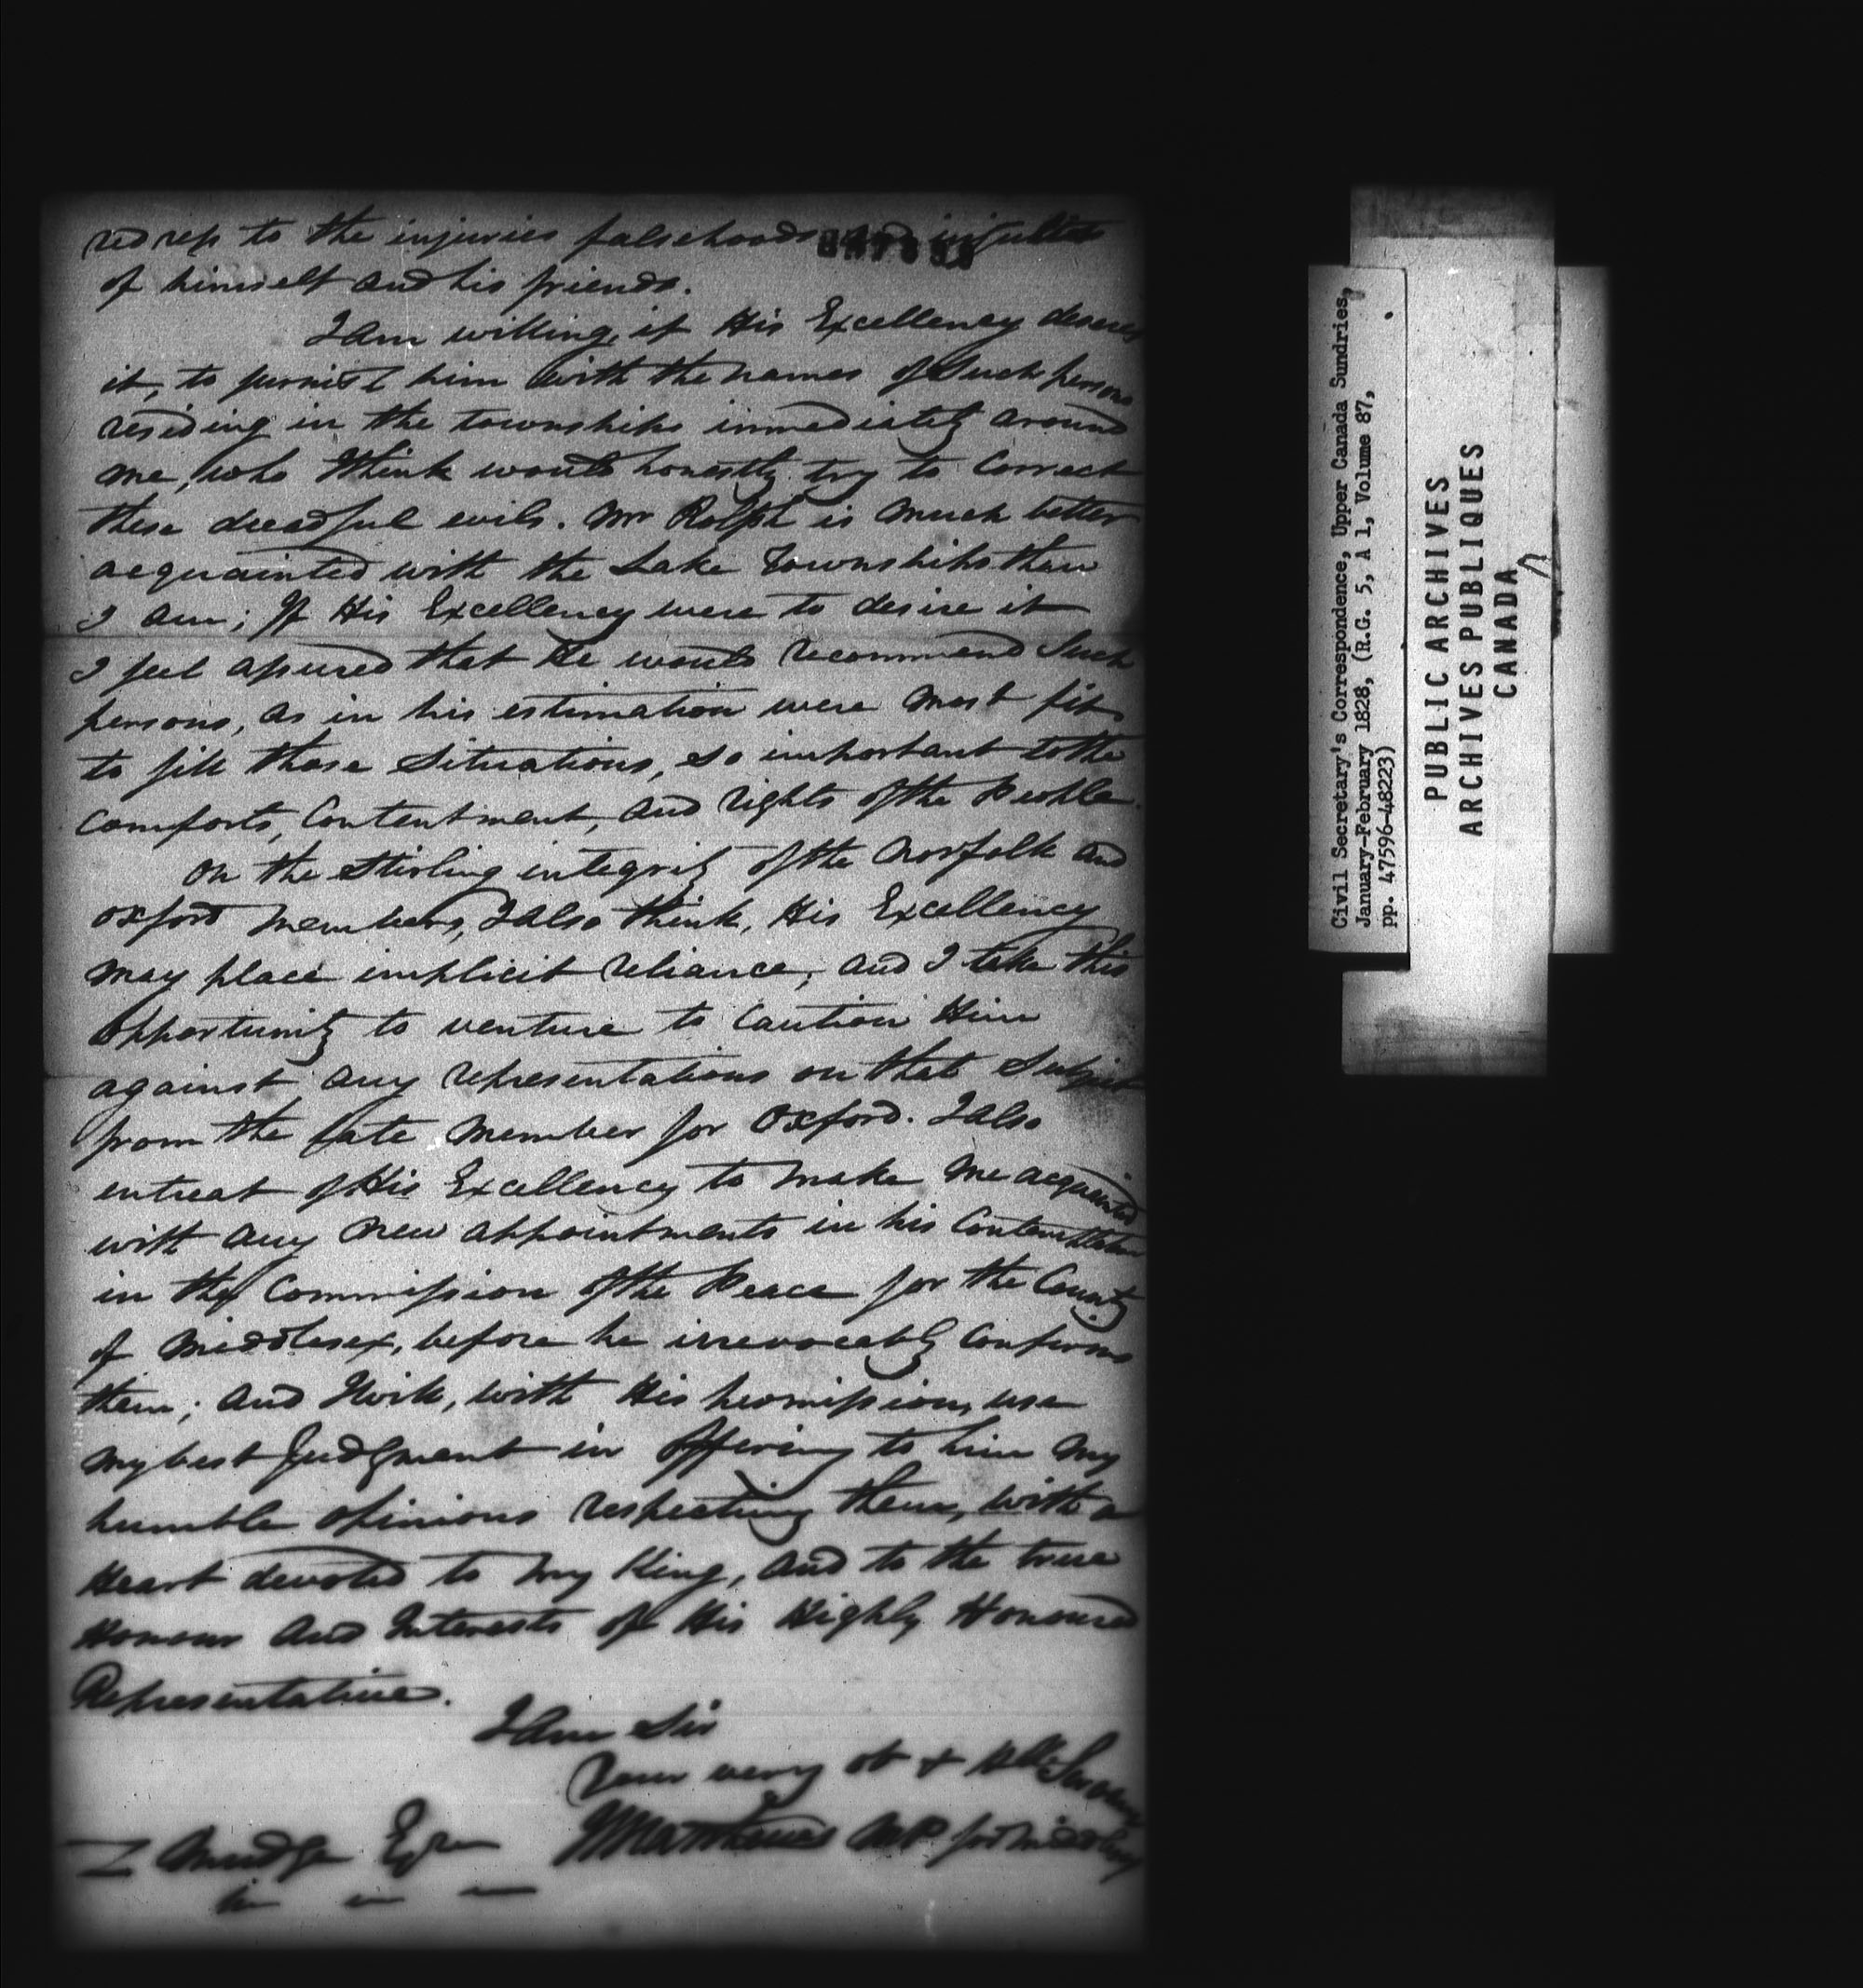 redress to the injuries falsehoods and insults
of himself and his friends.
I am willing, if His Excellency desires
it, to furnish him with the names of Such persons
residing in the townships immediately around
me, who I think would honestly try to Correct
these dreadful evils. Mr Rolph is Much better
acquainted with the Lake Townships than
I am; If His Excellency were to desire it
I feel assured that He would recommend Such
persons, as in his estimation were Most fit
to fill those Situations, so important to the
Comforts, Contentment, and rights of the People.
On the Stirling integrity of the Norfolk and
Oxford Members, I also think, His Excellency
May place implicit reliance; and I take this
Opportunity to venture to Caution Him
against any representations on that Subject
from the late Member for Oxford. I also
entreat of His Excellency to Make Me acquainted
with any New appointments in his Contemplation
in the Commission of the Peace for the County
of Middlesex, before he irrevocably Confirms
them; and I will, with His permission, use
My best Judgment in Offering to him My
humble opinions respecting them, with a
Heart devoted to My King, and to the true
Honour And Interests of His Highly Honoured
Representative.
I Am Sir
Your very ob & Hble Servant
Z Mudge Esqr Matthews MP for Middlesex
Civil Secretary's Correspondence, Upper Canada Sundries,
January-February 1828, (R.G. 5, A 1, Volume 87,
pp. 47596-48223)
PUBLIC ARCHIVES
ARCHIVES PUBLIQUES
CANADA